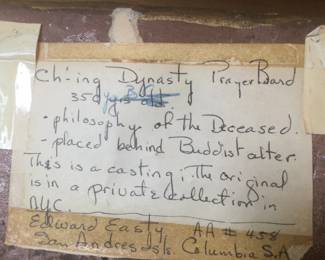 Ch-ing Dynasty PrayerBoard
350 yrs old.
• philosophy of the Deceased.
• placed behind Buddist alter.
This is a casting; The original
is in a private collection in
NYC.
Edward Easty AA # 458
San Andres Isls. Columbia S.A